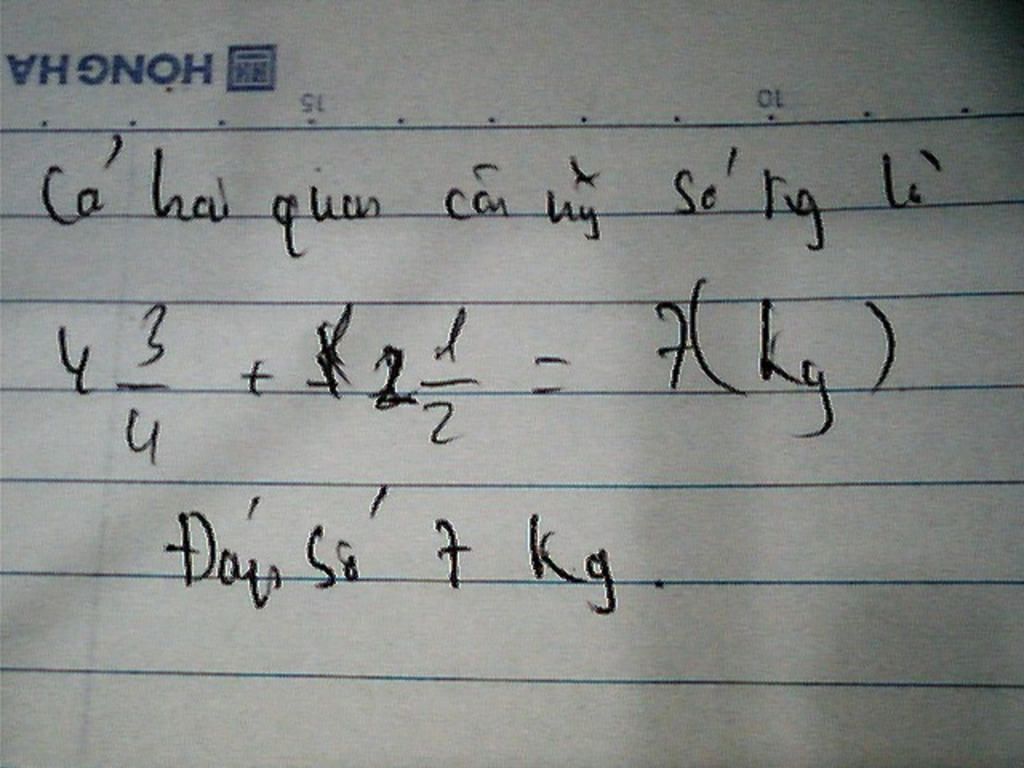 HỒNG HÀ
15 10
Cả hai quan cân nặng số kg là
4 3/4 + 2 1/2 = 7 (kg)
Đáp số 7 kg.